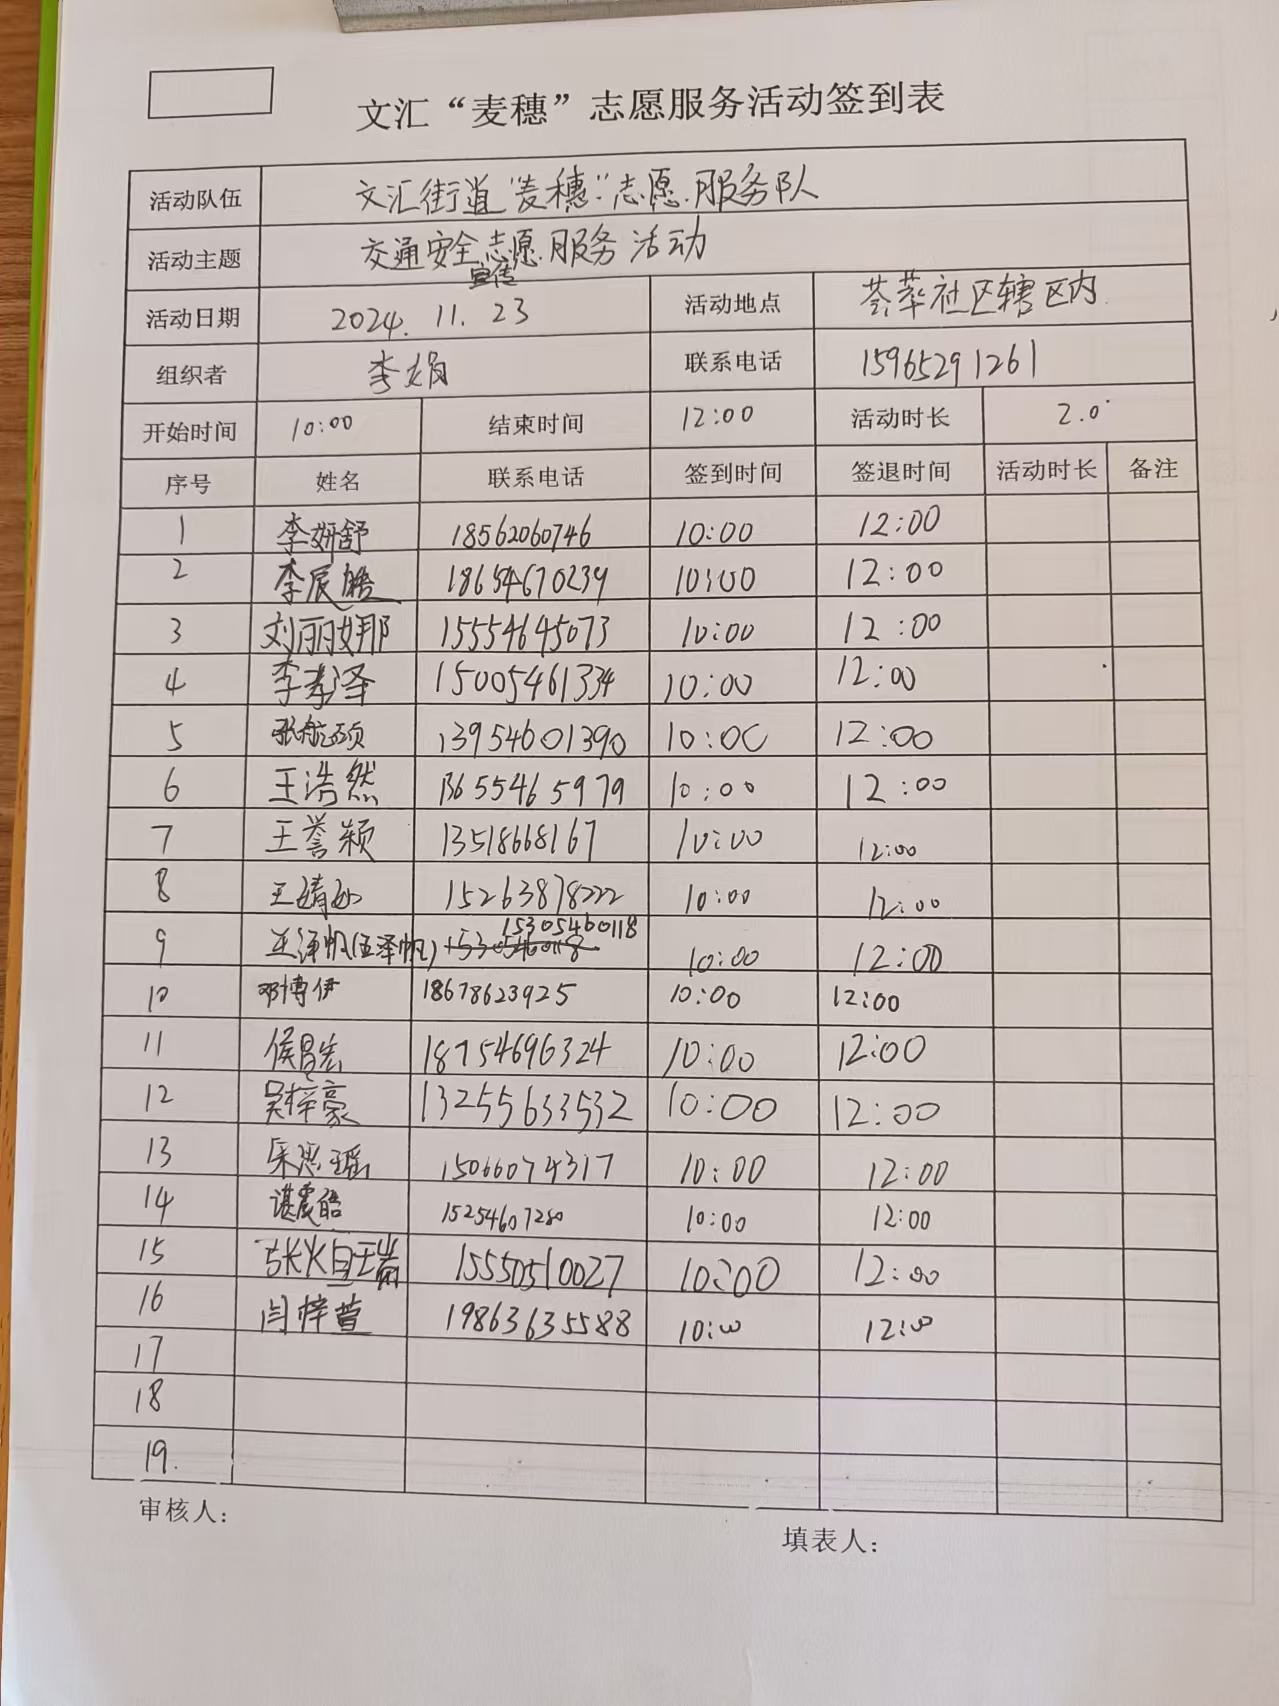 文汇“麦穗”志愿服务活动签到表
活动队伍 文汇街道“麦穗”志愿服务队
活动主题 交通安全宣传志愿服务活动
活动日期 2024.11.23 活动地点 荟萃社区辖区内
组织者 李娟 联系电话 15965291261
开始时间 10:00 结束时间 12:00 活动时长 2.0
序号 姓名 联系电话 签到时间 签退时间 活动时长 备注
1 李妍舒 18562060746 10:00 12:00
2 李辰皓 18654670239 10:00 12:00
3 刘丽娜 15554645073 10:00 12:00
4 李孝泽 15005461334 10:00 12:00
5 张航硕 13954601390 10:00 12:00
6 王浩然 13655465979 10:00 12:00
7 王誉颖 13518668167 10:00 12:00
8 王婧 15263878222 10:00 12:00
9 王泽帆(王泽帆) 15305460118 10:00 12:00
10 邓博伊 18678623925 10:00 12:00
11 侯昌宏 18754696324 10:00 12:00
12 吴梓豪 13255633532 10:00 12:00
13 朱思瑶 15066074317 10:00 12:00
14 谌震皓 15254607280 10:00 12:00
15 张煜瑞 15550510027 10:00 12:00
16 闫梓萱 19863635588 10:00 12:00
17
18
19.
审核人：
填表人：